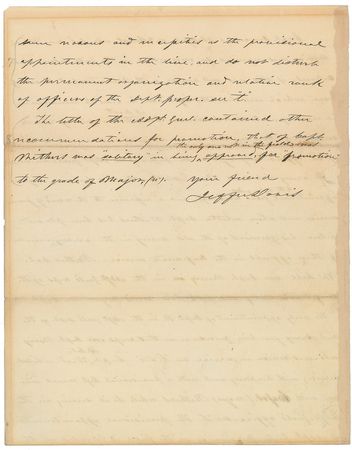 same reasons and necessities as the provisional
appointments in the line, and do not disturb
the permanent organization and relative rank
of officers of the Dept. proper.
The letter of the Genl. contained other
recommendations for promotion, that of Capt
the only one not in the field & was
Withers was "solitary" in being approved, for "promotion"
to the grade of Major,
Your friend
Jeffn Davis